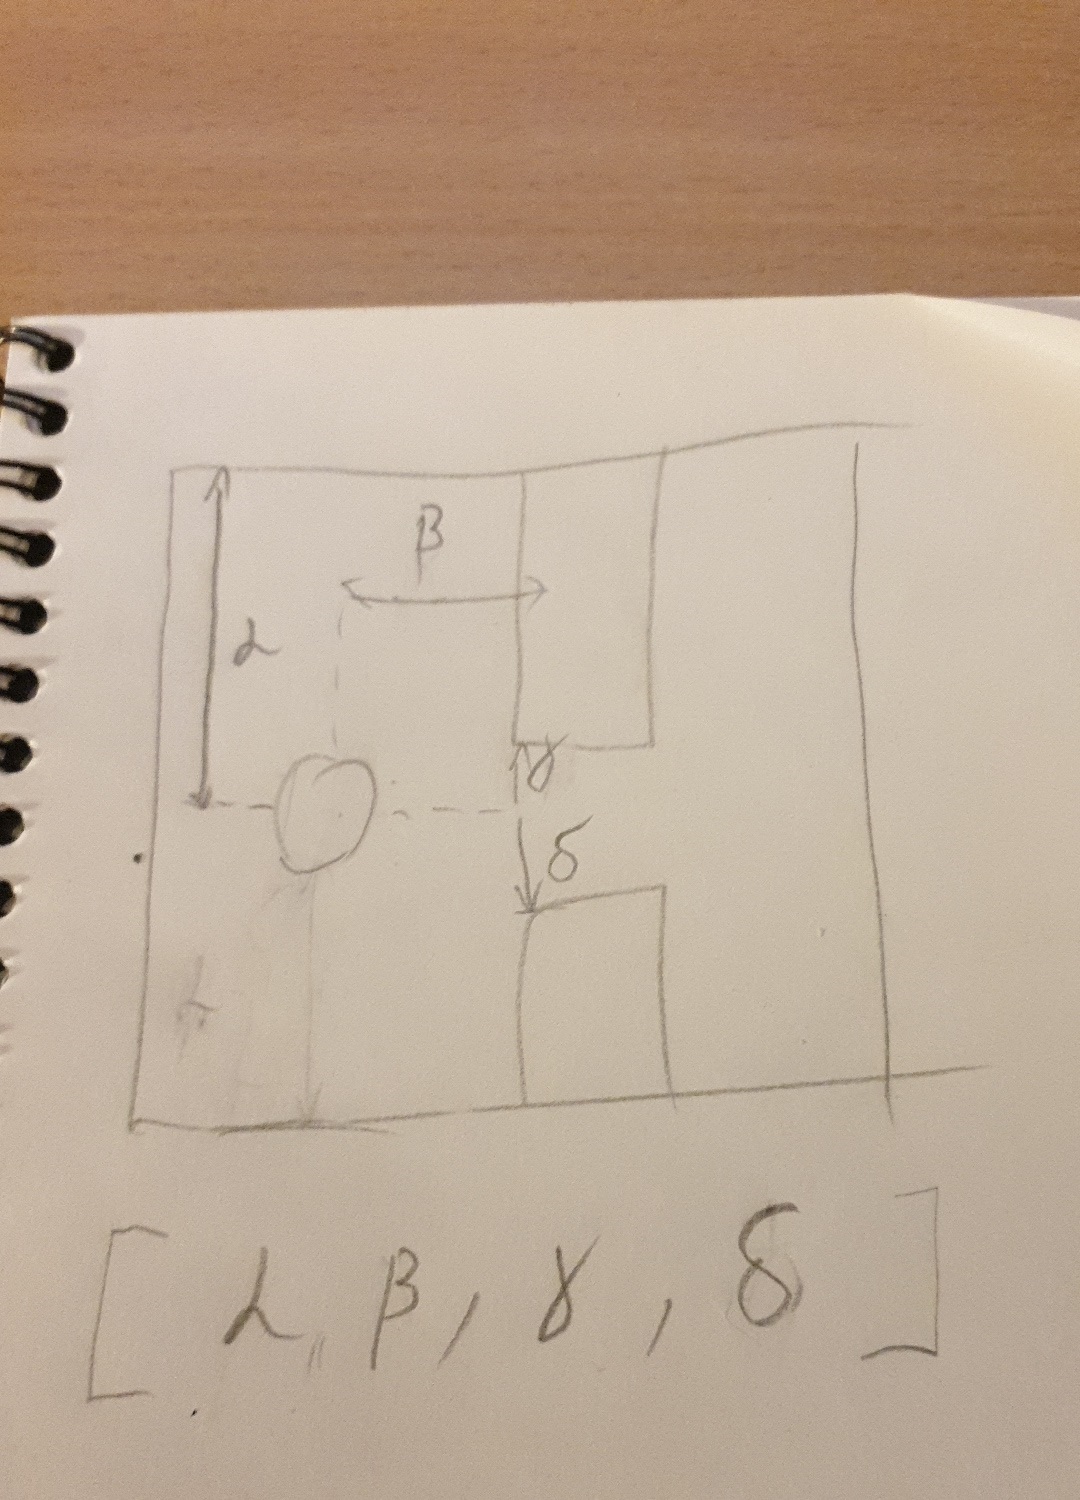 β
α
γ
δ
[ α, β, γ, δ ]